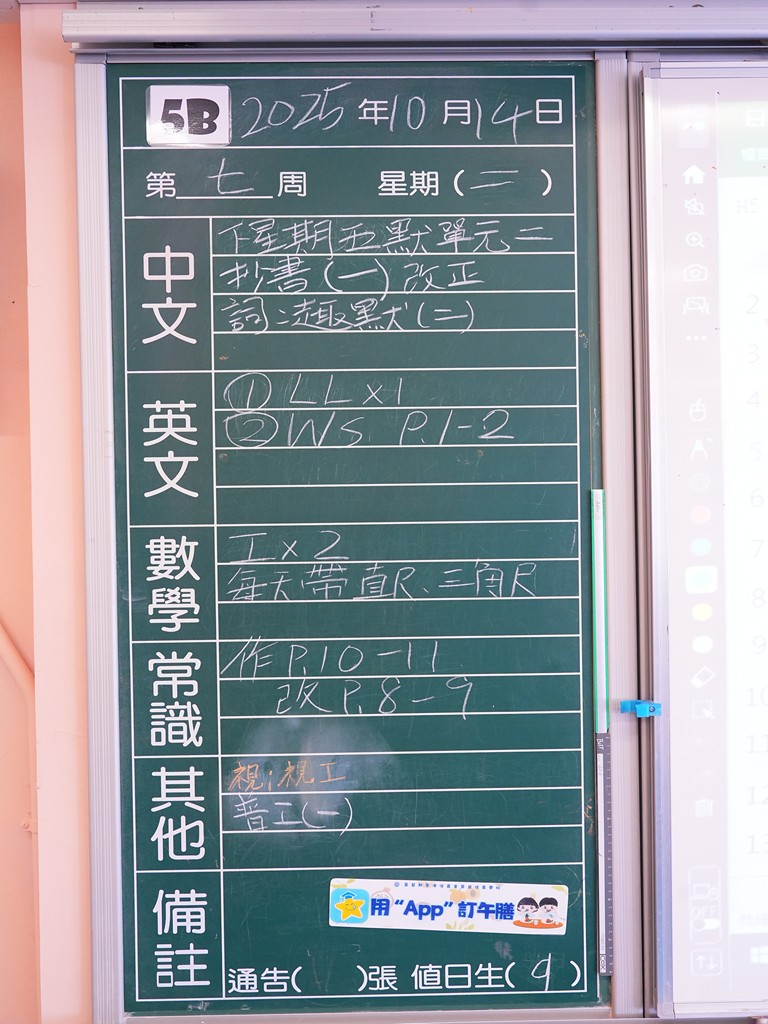 5B 2025年10月14日
第七周 星期(二)
中文
下星期五默單元二
抄書(一)改正
詞:趣默(二)
英文
① LL x1
② WS P.1-2
數學
工x2
每天帶直尺、三角尺
常識
作P.10-11
改P.8-9
其他
視:視工
普工(一)
備註
用“App”訂午膳
通告( )張 值日生(9)
H5
2
3
4
5
6
7
8
9
10
11
12
13